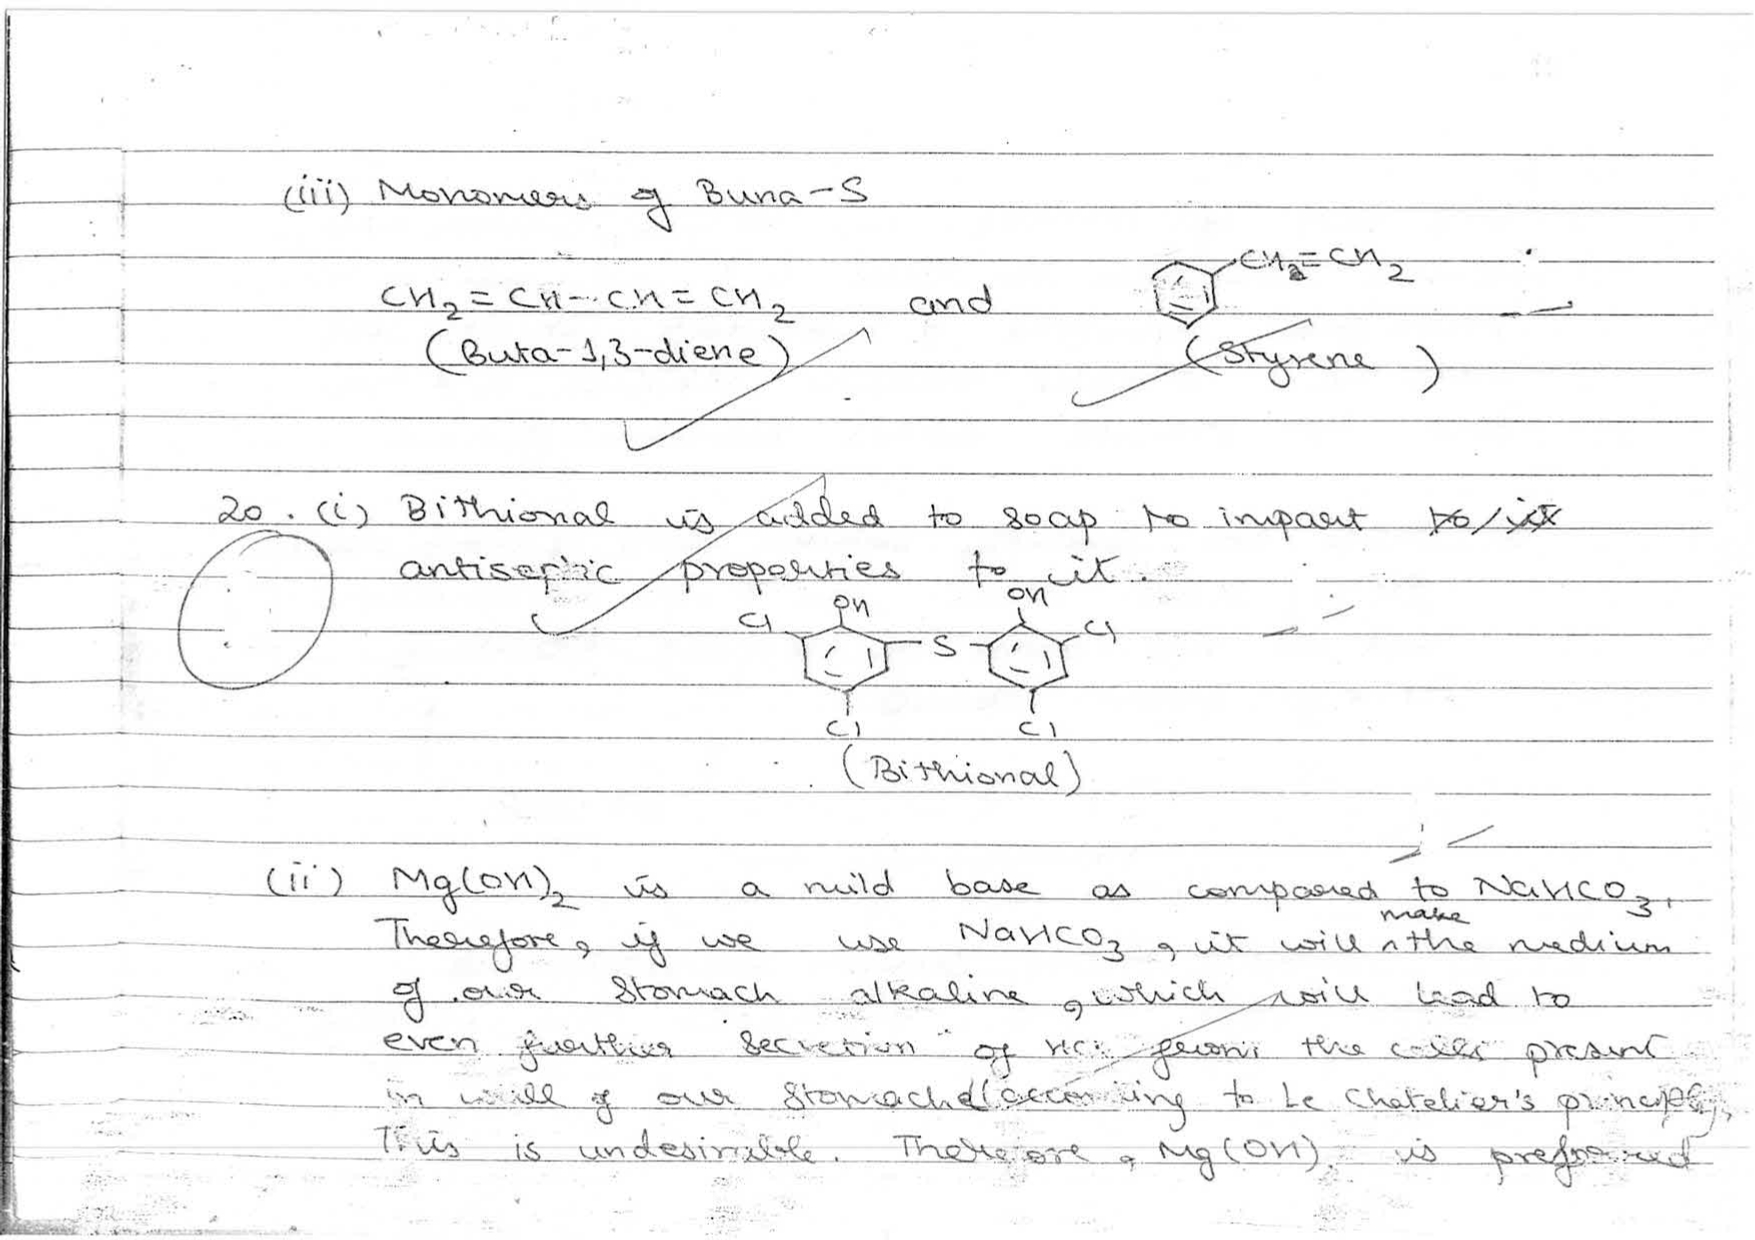 (iii) Monomers of Buna-S
CH₂=CH₂
CH₂ = CH - CH = CH₂ and
(Buta-1,3-diene) (Styrene)
20. (i) Bithional is added to soap to impart to/it
antiseptic properties to it.
OH OH
Cl S Cl
Cl Cl
(Bithional)
(ii) Mg(OH)₂ is a mild base as compared to NaHCO₃.
make
Therefore, if we use NaHCO₃, it will ^ the medium
of our stomach alkaline, which will lead to
even further secretion of HCl from the cells present
in wall of our stomach (according to Le Chatelier's principle),
This is undesirable. Therefore, Mg(OH) is preferred